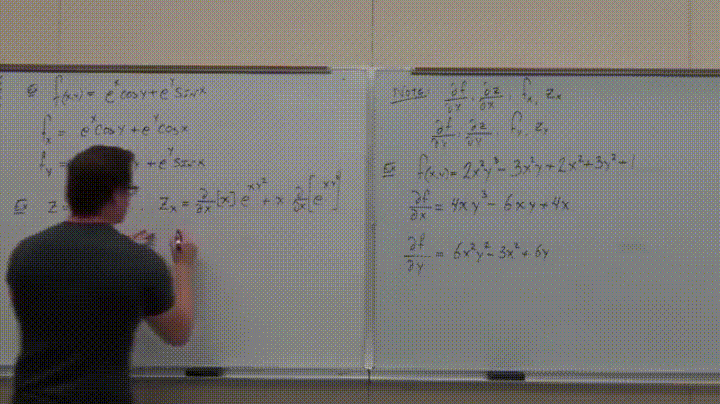 Ex f(x,y) = e^x cos y + e^y sin x
f_x = e^x cos y + e^y cos x
f_y = + e^y sin x
Ex z = z_x = ∂/∂x [x] e^{xy^2} + x ∂/∂x [e^{xy^2}]
Note: ∂f/∂x, ∂z/∂x, f_x, z_x
∂f/∂y, ∂z/∂y, f_y, z_y
Ex f(x,y) = 2x^2y^3 - 3x^2y + 2x^2 + 3y^2 + 1
∂f/∂x = 4xy^3 - 6xy + 4x
∂f/∂y = 6x^2y^2 - 3x^2 + 6y